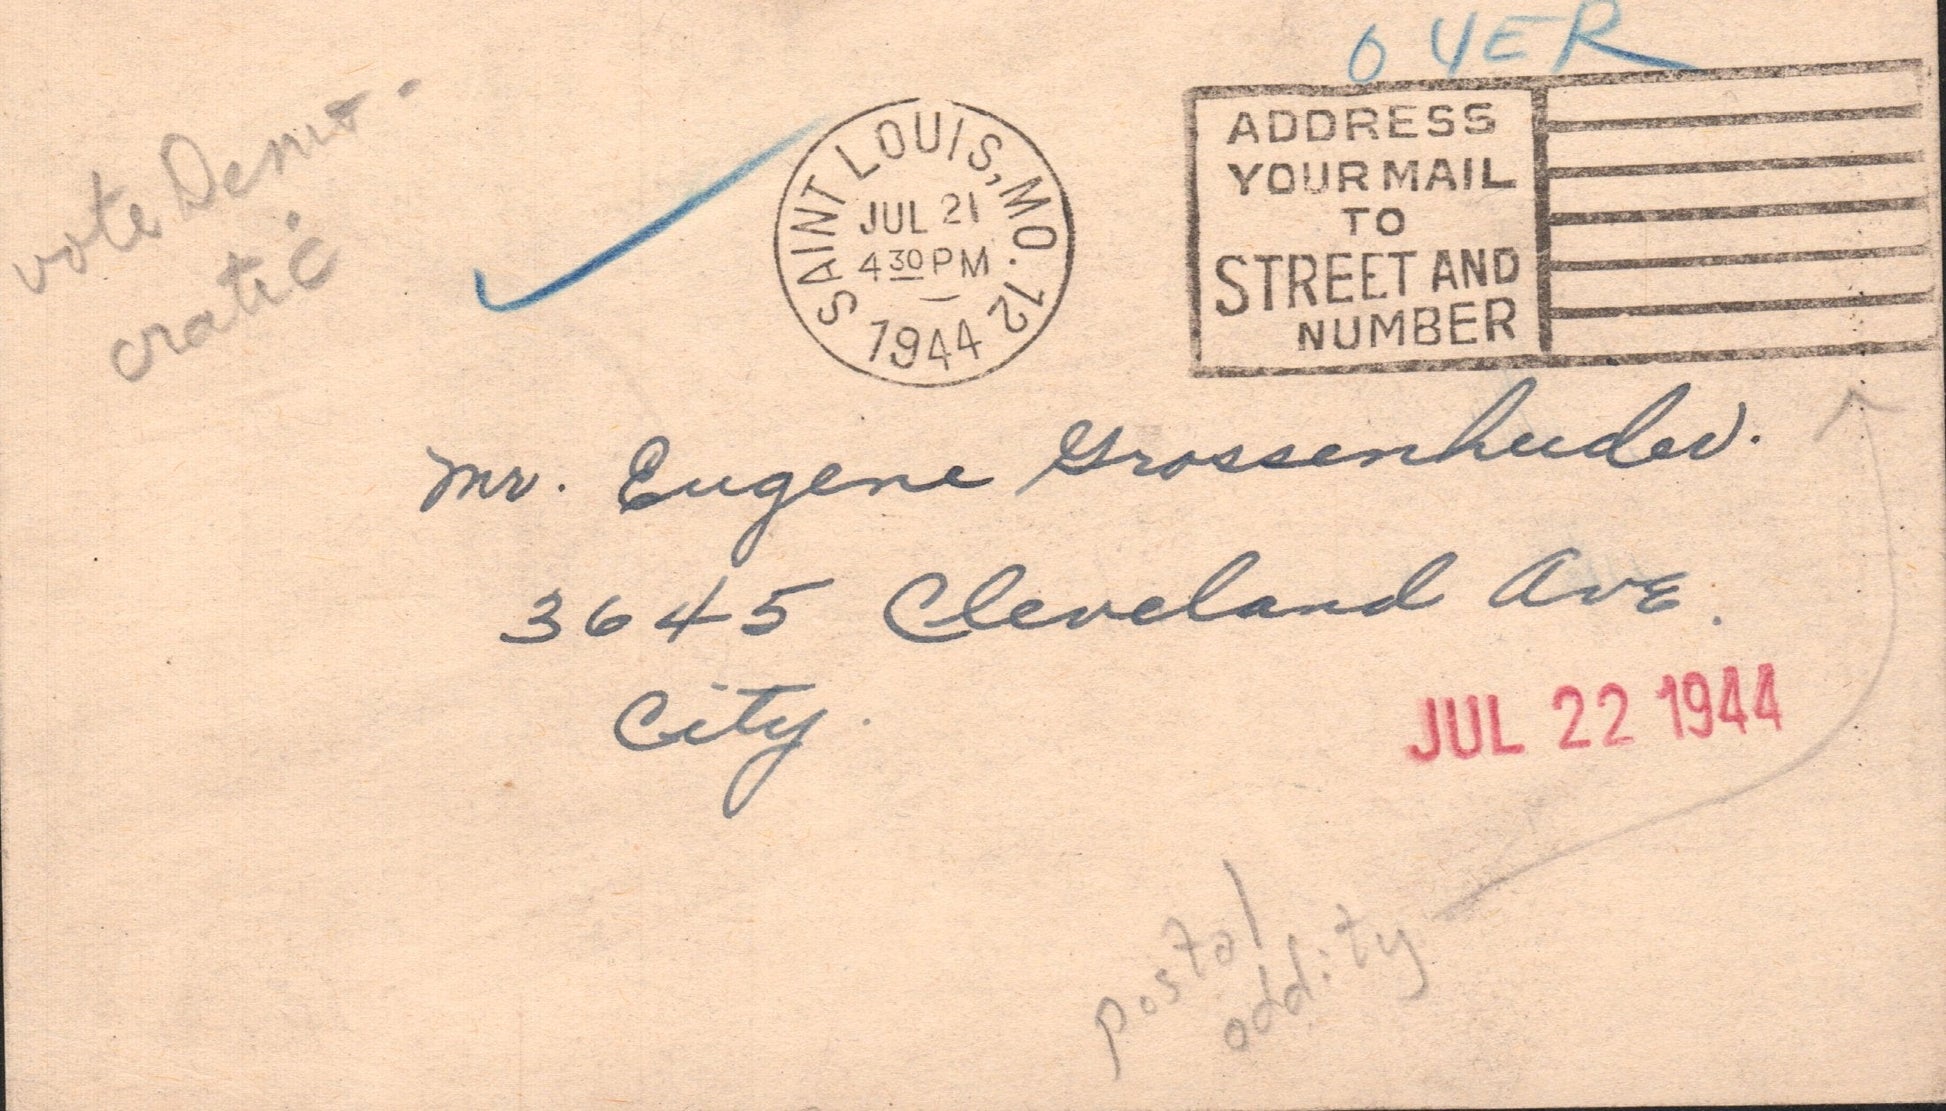 OVER
vote Demo-
cratic
SAINT LOUIS, MO. 72
JUL 21
4 30 PM
1944
ADDRESS
YOUR MAIL
TO
STREET AND
NUMBER
Mr. Eugene Grossenheider.
3645 Cleveland Ave.
City.
JUL 22 1944
postal
oddity